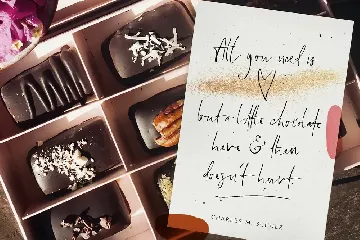 All you need is
but a little chocolate
here & then
doesn't hurt.
CHARLES M. SCHULZ